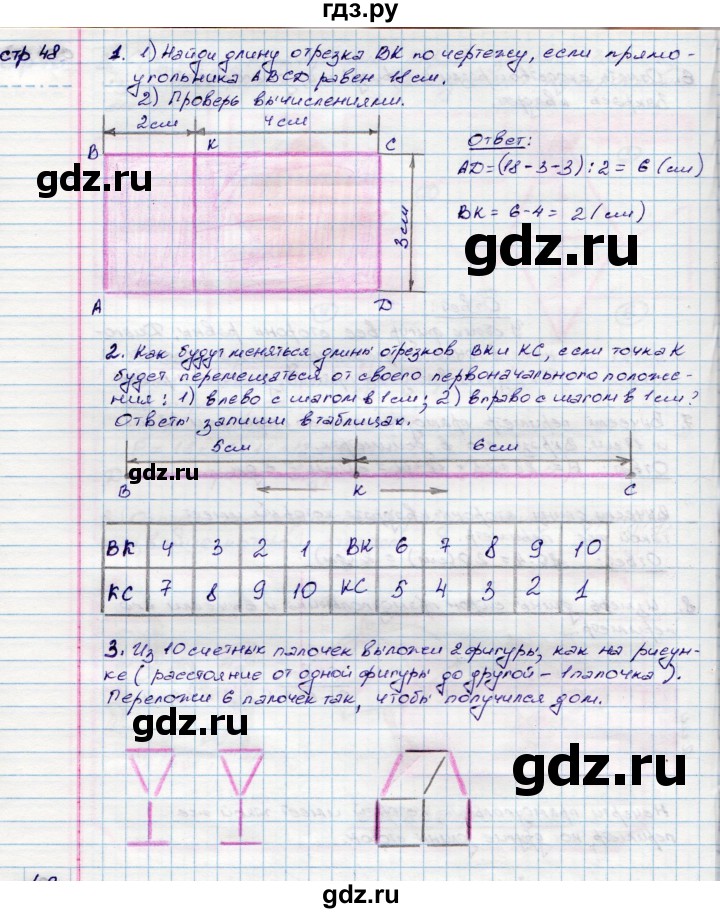 гдз.ру
стр 48
1. 1) Найди длину отрезка ВК по чертежу, если прямо-
угольника ABCD равен 18 см.
2) Проверь вычислениями.
2 см 4 см
В К С
3 см
А D
Ответ:
AD = (18 - 3 - 3) : 2 = 6 (см)
ВК = 6 - 4 = 2 (см)
gdz.ru
gdz.ru
2. Как будут меняться длины отрезков ВК и КС, если точка К
будет перемещаться от своего первоначального положе-
ния: 1) влево с шагом в 1 см; 2) вправо с шагом в 1 см?
Ответы запиши в таблицах.
5 см 6 см
gdz.ru
В К С
ВК 4 3 2 1 ВК 6 7 8 9 10
КС 7 8 9 10 КС 5 4 3 2 1
3. Из 10 счетных палочек выложи 2 фигуры, как на рисун-
ке (расстояние от одной фигуры до другой - 1 палочка).
Переложи 6 палочек так, чтобы получился дом.
gdz.ru
gdz.ru
gdz.ru